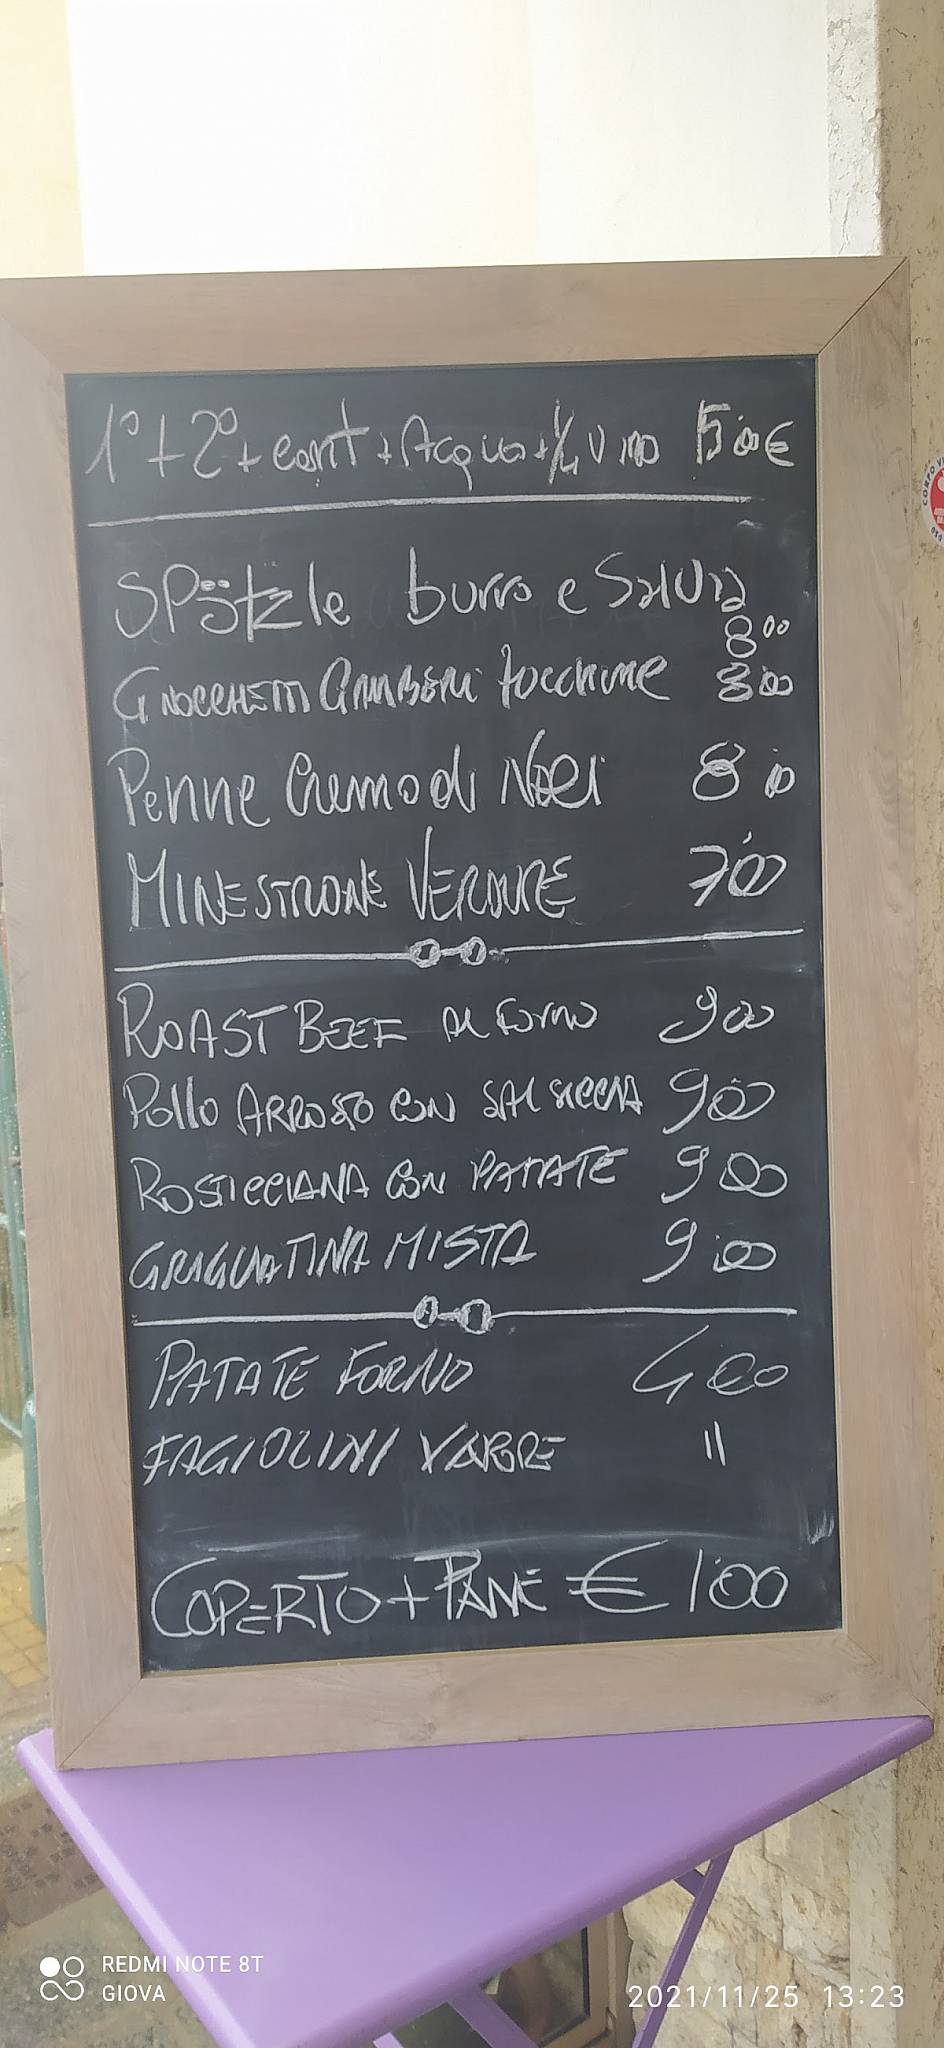 1° + 2° + cont + Acqua + 1/4 Vino 15,00€
SPätzle burro e SalVia
8,00
GNOCCHETTI GAMBERI ZUCCHINE 8,00
Penne Crema di Noci 8,00
MINESTRONE VERDURE 7,00
ROAST BEEF AL FORNO 9,00
Pollo ARROSTO CON SALSICCIA 9,00
ROSTICCIANA CON PATATE 9,00
GRIGLIATINA MISTA 9,00
PATATE FORNO 4,00
FAGIOLINI "
COPERTO + PANE € 1,00
REDMI NOTE 8T
GIOVA
2021/11/25 13:23